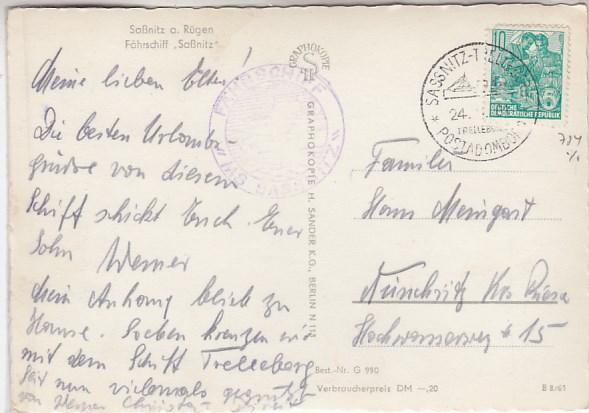 Saßnitz a. Rügen
Fährschiff „Saßnitz"
Meine lieben Eltern!
Die besten Urlaubs-
grüße von diesem
Schiff schickt Euch Euer
Sohn Werner
Mein Anhang blieb zu
Hause. Soeben kreuzen wir
mit dem Schiff Trelleborg
Seit nun vielemals gegrüßt
von Werner
GRAPHOKOPIE
GRAPHOKOPIE H. SANDER K.G., BERLIN N 113
FÄHRSCHIFF
"SASSNITZ"
SASSNITZ-TRELLEBORG
24.
TRELLEBORG
POSTADOMBORD
10
5
DEUTSCHE
DEMOKRATISCHE REPUBLIK
Familie
Hans Meingast
Nünchritz Krs Riesa
Hochwasserweg 15
Best.-Nr. G 990
Verbraucherpreis DM —,20
B 8/61